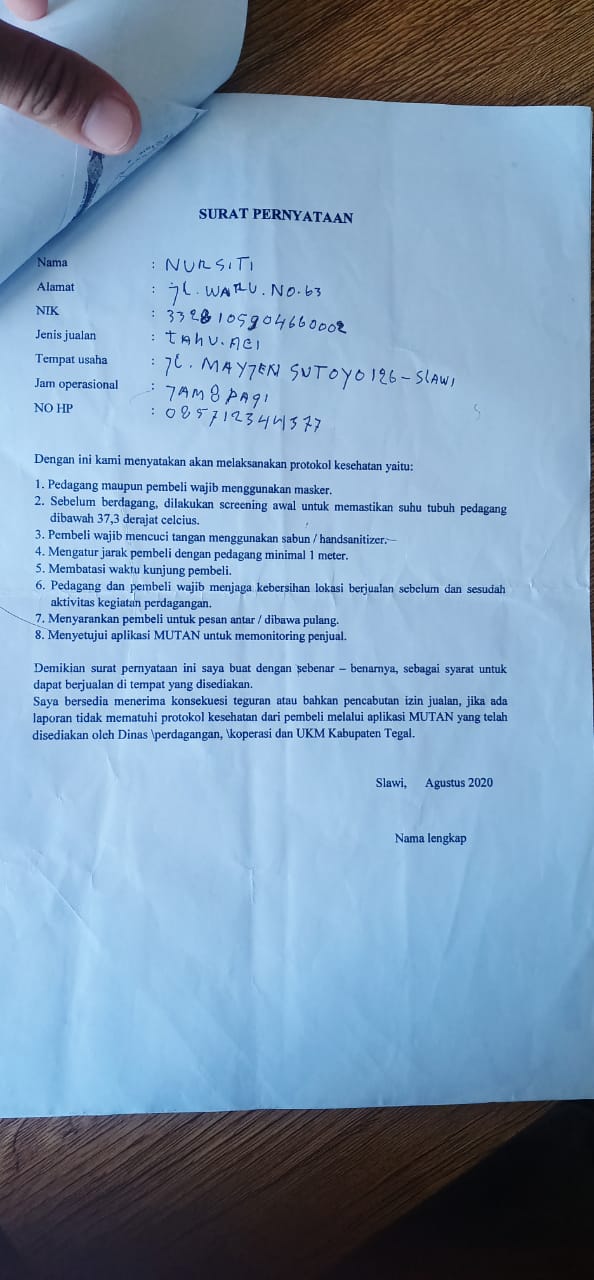 SURAT PERNYATAAN
Nama : NURSITI
Alamat : JL. WARU. NO. 63
NIK : 3328105904660002
Jenis jualan : TAHU. ACI
Tempat usaha : JL. MAYJEN SUTOYO 126 - SLAWI
Jam operasional : JAM 8 PAGI
NO HP : 085712344377
Dengan ini kami menyatakan akan melaksanakan protokol kesehatan yaitu:
1. Pedagang maupun pembeli wajib menggunakan masker.
2. Sebelum berdagang, dilakukan screening awal untuk memastikan suhu tubuh pedagang
dibawah 37,3 derajat celcius.
3. Pembeli wajib mencuci tangan menggunakan sabun / handsanitizer.
4. Mengatur jarak pembeli dengan pedagang minimal 1 meter.
5. Membatasi waktu kunjung pembeli.
6. Pedagang dan pembeli wajib menjaga kebersihan lokasi berjualan sebelum dan sesudah
aktivitas kegiatan perdagangan.
7. Menyarankan pembeli untuk pesan antar / dibawa pulang.
8. Menyetujui aplikasi MUTAN untuk memonitoring penjual.
Demikian surat pernyataan ini saya buat dengan sebenar – benarnya, sebagai syarat untuk
dapat berjualan di tempat yang disediakan.
Saya bersedia menerima konsekuesi teguran atau bahkan pencabutan izin jualan, jika ada
laporan tidak mematuhi protokol kesehatan dari pembeli melalui aplikasi MUTAN yang telah
disediakan oleh Dinas \perdagangan, \koperasi dan UKM Kabupaten Tegal.
Slawi, Agustus 2020
Nama lengkap